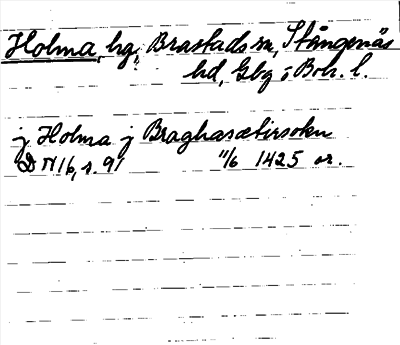 Holma, hg, Brastads sn, Stångenäs
hd, Gbg o Boh. l.
j Holma j Braghasætirsokn
DN 16, s. 91 11/6 1425 or.